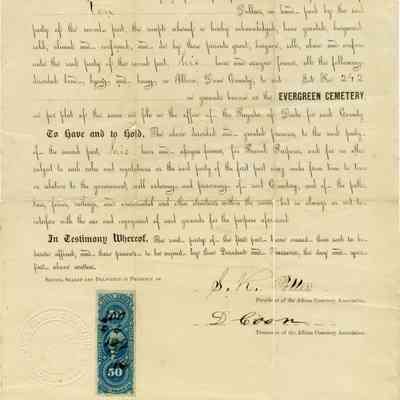 Ten Dollars, in hand paid by the said
party of the second part, the receipt whereof is hereby acknowledged, have granted, bargained
sold, aliened and confirmed, and do by these presents grant, bargain, sell, alien and confirm
unto the said party of the second part, his heirs and assigns forever, all the following
described land, lying and being in Albion, County, to wit: Lot No. 242
in grounds known as the EVERGREEN CEMETERY
as per plat of the same on file in the office of the Register of Deeds for said County.
To Have and to Hold, The above described and granted premises, to the said party
of the second part, his heirs and assigns forever, for Burial Purposes, and for no other
subject to such rules and regulations as the said party of the first part may make from time to time
in relation to the government, of said Cemetery, and of the
fences, and ornamental and other structures within the same, but so always as not to
interfere with the use and enjoyment of said grounds for the purpose aforesaid.
In Testimony Whereof, The said party of the first part have caused their seal to be
hereto affixed, and these presents to be signed by their President and Treasurer, the day and year
first above written.
SIGNED, SEALED AND DELIVERED IN PRESENCE OF
S. V. R.
President of the Albion Cemetery Association.
D Coon
Treasurer of the Albion Cemetery Association.
50